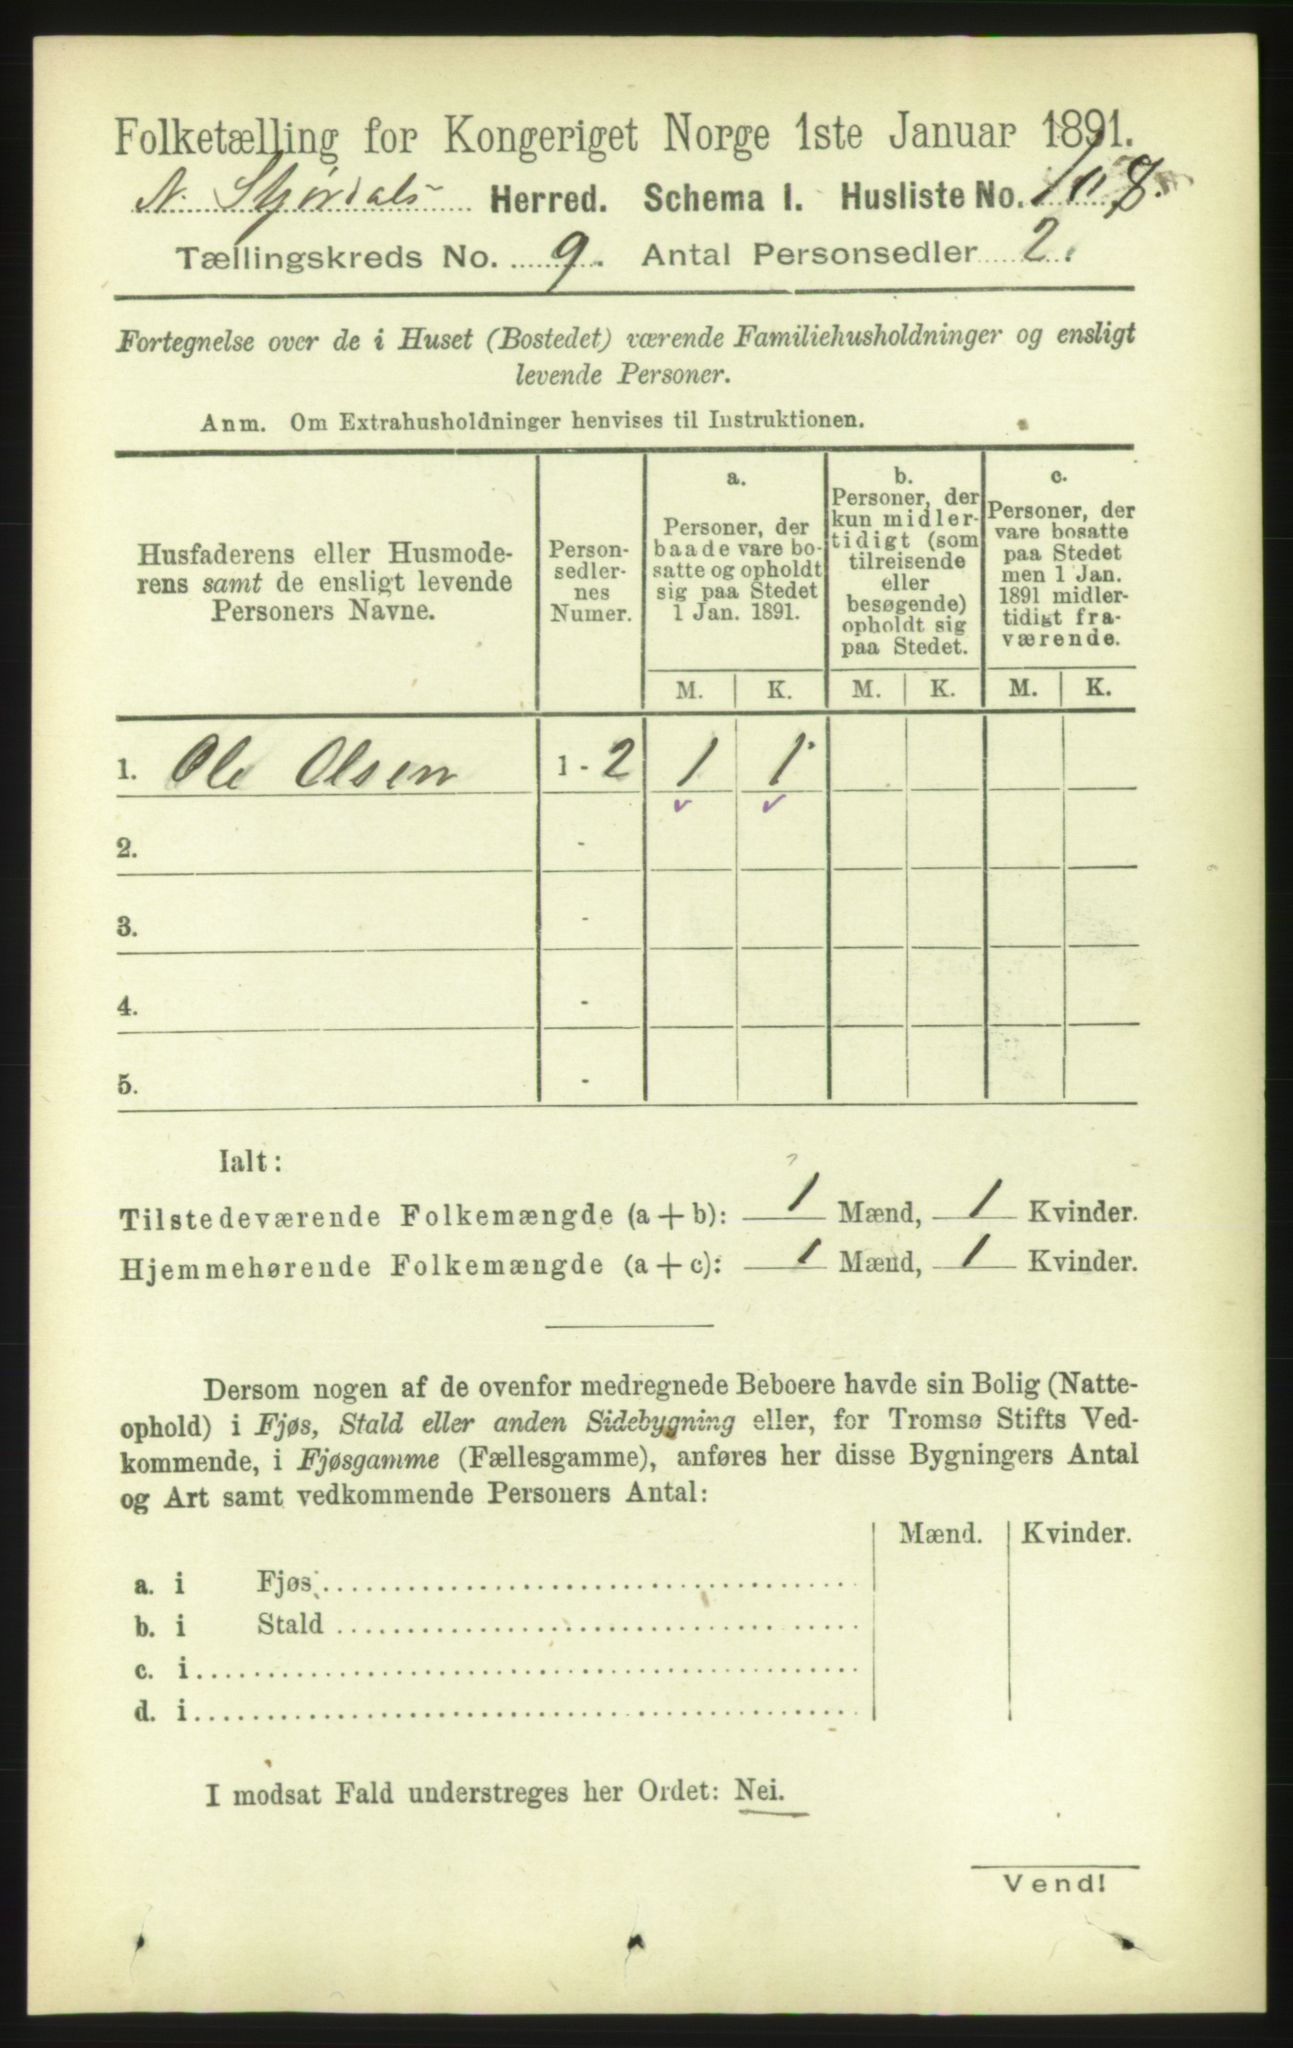 Folketælling for Kongeriget Norge 1ste Januar 1891.
N. Stjørdals Herred. Schema I. Husliste No. 108.
Tællingskreds No. 9. Antal Personsedler 2.
Fortegnelse over de i Huset (Bostedet) værende Familiehusholdninger og ensligt
levende Personer.
Anm. Om Extrahusholdninger henvises til Instruktionen.
Husfaderens eller Husmode-
rens samt de ensligt levende
Personers Navne.
Person-
sedler-
nes
Numer.
a.
Personer, der
baade vare bo-
satte og opholdt
sig paa Stedet
1 Jan. 1891.
b.
Personer, der
kun midler-
tidigt (som
tilreisende
eller
besøgende)
opholdt sig
paa Stedet.
c.
Personer, der
vare bosatte
paa Stedet
men 1 Jan.
1891 midler-
tidigt fra-
værende.
M. K. M. K. M. K.
1. Ole Olsen 1 - 2 1 1
2. -
3. -
4. -
5. -
Ialt:
Tilstedeværende Folkemængde (a + b): 1 Mænd, 1 Kvinder.
Hjemmehørende Folkemængde (a + c): 1 Mænd, 1 Kvinder.
Dersom nogen af de ovenfor medregnede Beboere havde sin Bolig (Natte-
ophold) i Fjøs, Stald eller anden Sidebygning eller, for Tromsø Stifts Ved-
kommende, i Fjøsgamme (Fællesgamme), anføres her disse Bygningers Antal
og Art samt vedkommende Personers Antal:
Mænd. Kvinder.
a. i Fjøs
b. i Stald
c. i
d. i
I modsat Fald understreges her Ordet: Nei.
Vend!